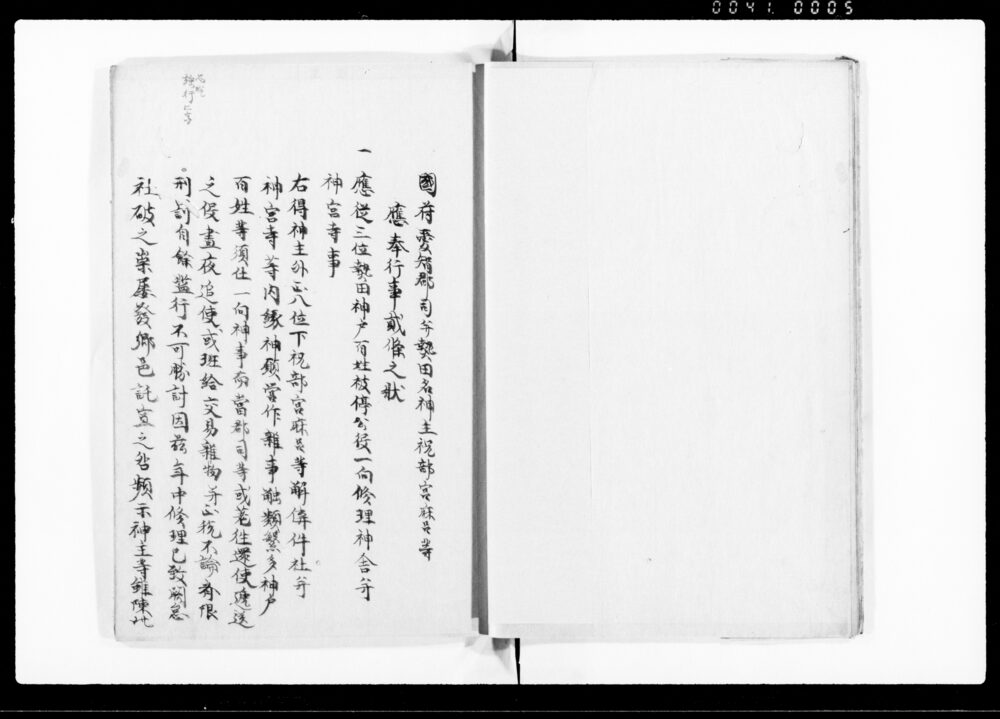 0041 0005
國符愛智郡司并熱田名神主祝部宮麻呂等
應奉行事貳條之狀
一 應從三位熱田神戸百姓被停公役一向修理神舎并
神宮寺事
右得神主外正八位下祝部宮麻呂等解偁件社并
神宮寺等内縁神願営作雜事融類繁多神戸
百姓等須仕一向神事而當郡司等或差往還使逓送
之役晝夜追使或班給交易雜物并正税不論有限
刑罰自餘濫行不可勝計因茲年中修理已致闕怠
社破之祟屡發郷邑託宣之占頻示神主等雖陳此